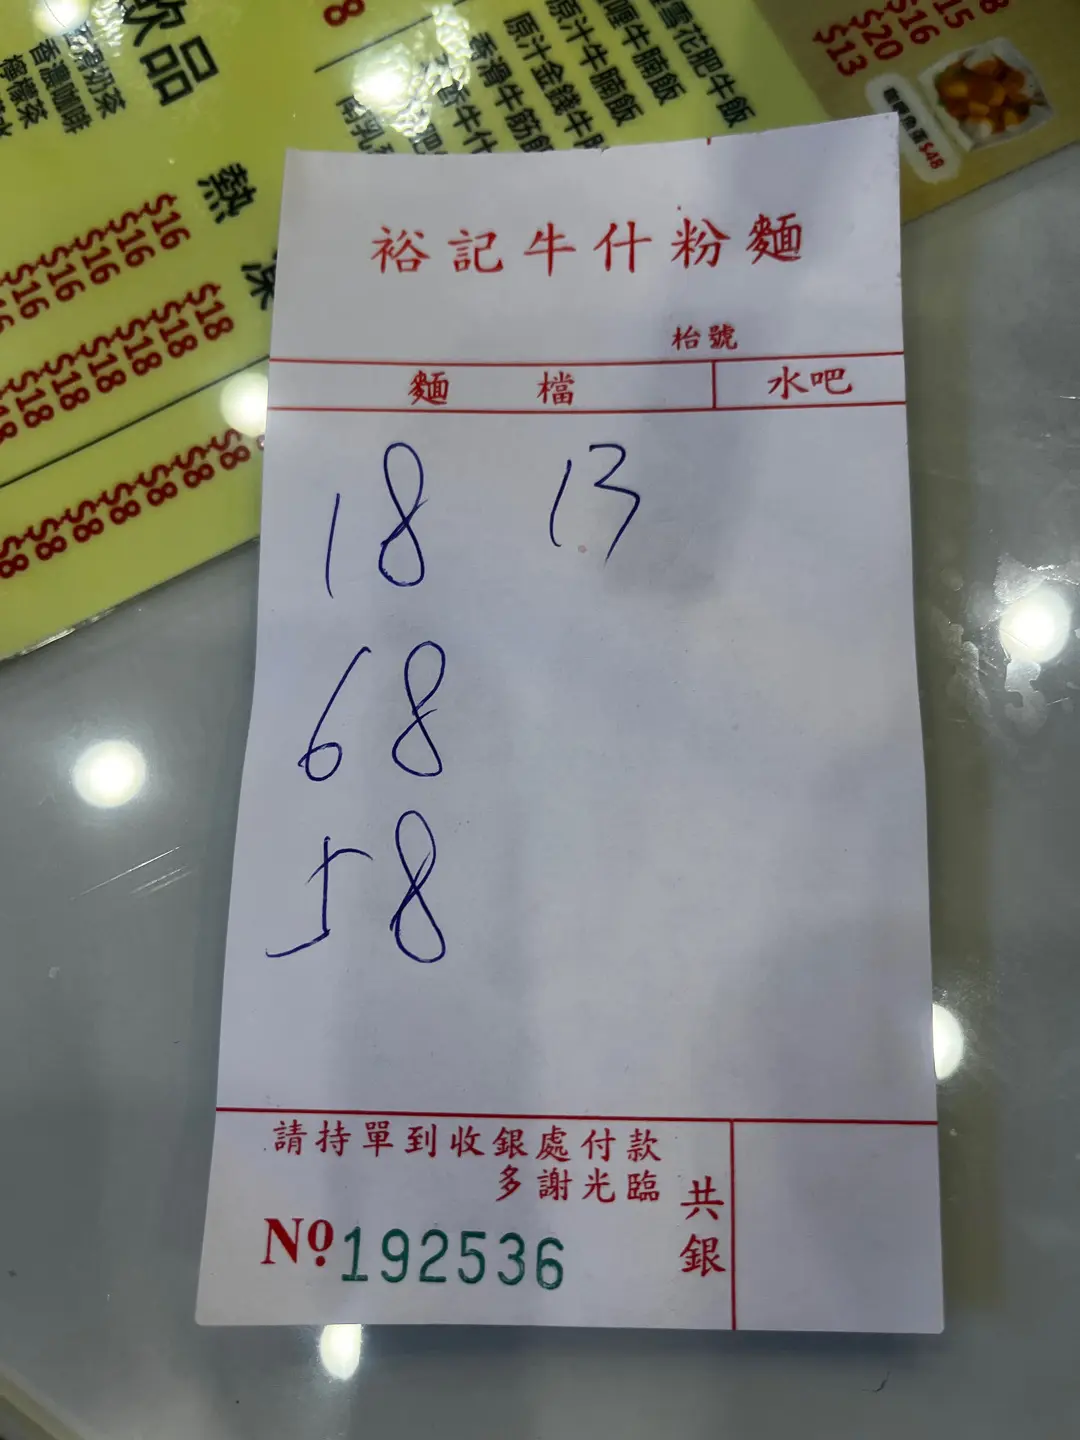 裕記牛什粉麵
枱號
麵 檔 水吧
18 13
68
58
請持單到收銀處付款
多謝光臨
共銀
Nº 192536
飲品
香濃咖啡
檸檬茶
熱
$16
$16
$16
$16
$18
$18
$18
$18
$8
$8
$8
$8
$8
$8
$8
雪花肥牛飯
牛腩飯
原汁牛腩飯
原汁金錢牛
香滑牛筋
$15
$16
$20
$13
$48